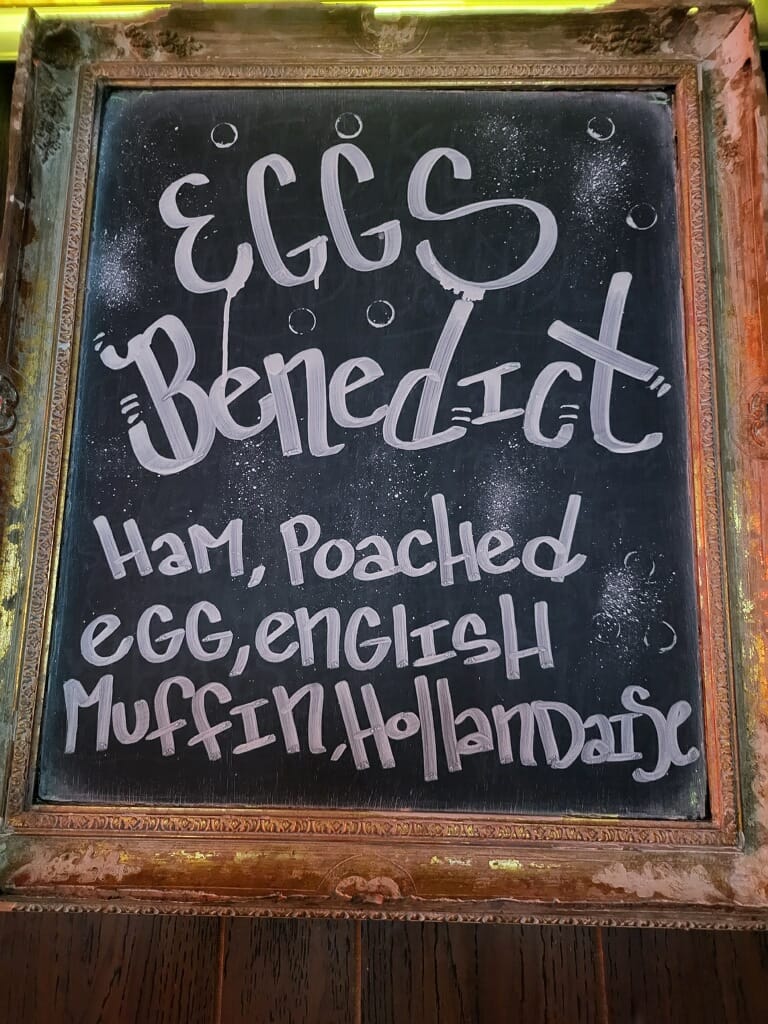 EGGS
Benedict
Ham, Poached
egg, english
Muffin, Hollandaise